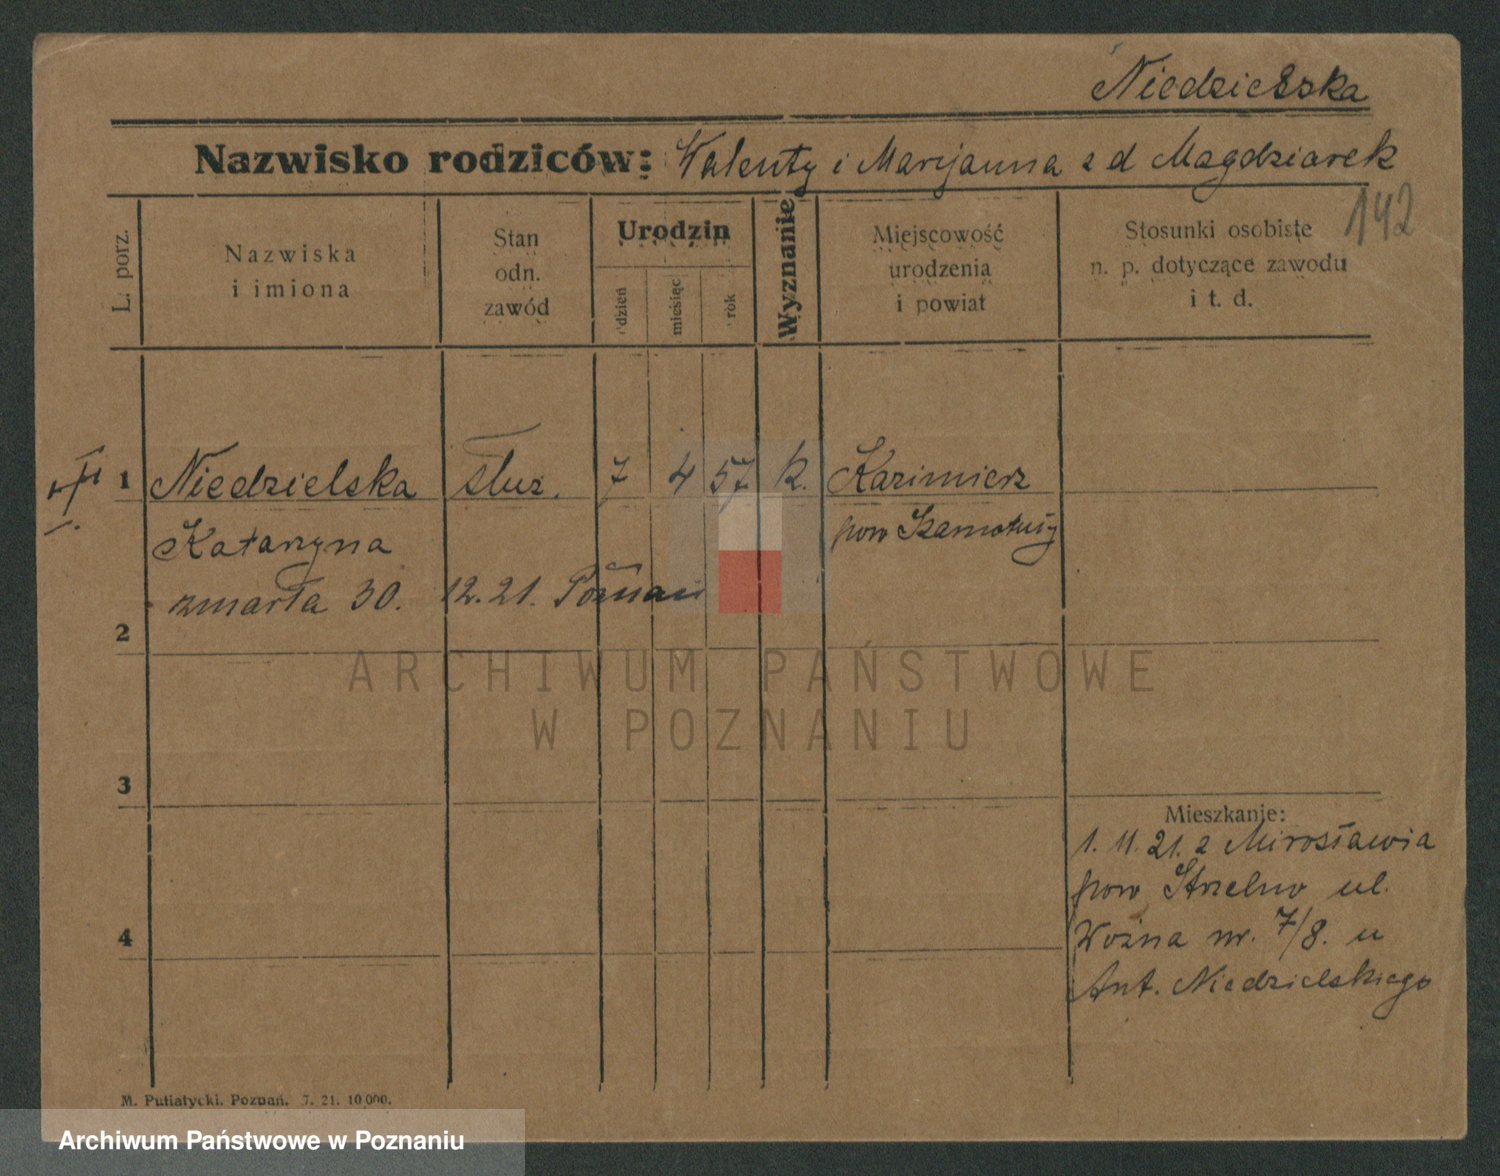 Niedzielska
Nazwisko rodziców: Walenty i Marijanna z d Magdziarek
142
L. porz.
Nazwiska
i imiona
Stan
odn.
zawód
Urodzin
dzień
miesiąc
rok
Wyznanie
Miejscowość
urodzenia
i powiat
Stosunki osobiste
n. p. dotyczące zawodu
i t. d.
1 Niedzielska służ. 7 4 57 k. Kazimierz
Katarzyna pow Szamotuły
zmarła 30. 12. 21. Poznań
2
ARCHIWUM PAŃSTWOWE
W POZNANIU
3
Mieszkanie:
1. 11. 21. z Mirosławia
pow Strzelno ul.
Woźna nr. 7/8. u
4
Ant. Niedzielskiego
M. Putiatycki. Poznań. 7. 21. 10 000.
Archiwum Państwowe w Poznaniu